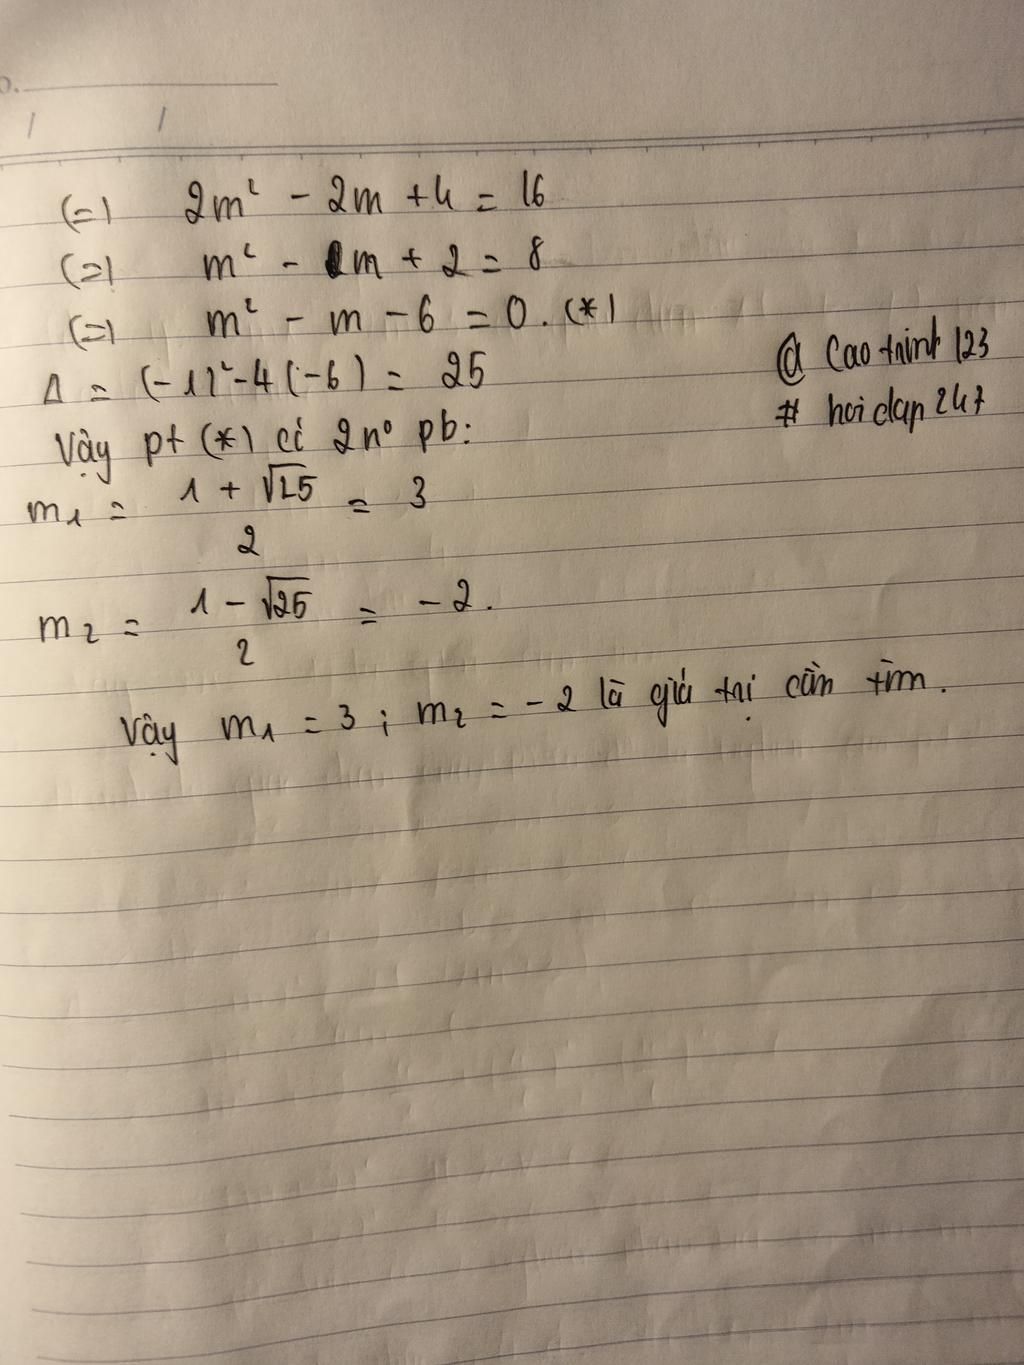 o.
/ /
(=) 2m² - 2m + 4 = 16
(=) m² - m + 2 = 8
(=) m² - m - 6 = 0. (*)
Δ = (-1)² - 4(-6) = 25
@ Cao trinh 123
# hoi dap 247
Vậy pt (*) có 2 n° pb:
m₁ = (1 + √25) / 2 = 3
m₂ = (1 - √25) / 2 = -2.
Vậy m₁ = 3 ; m₂ = -2 là giá trị cần tìm.